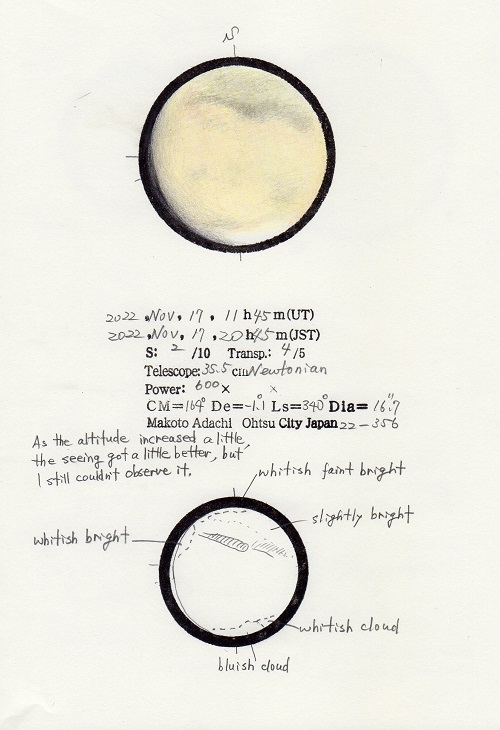 S
2022 . Nov. 17 . 11 h 45 m (UT)
2022 . Nov. 17 . 20 h 45 m (JST)
S: 2 /10 Transp.: 4 /5
Telescope: 35.5 cm Newtonian
Power: 600 × ×
CM=164° De=-1.1° Ls=340° Dia= 16."7
Makoto Adachi Ohtsu City Japan 22-356
As the altitude increased a little,
the seeing got a little better, but
I still couldn't observe it.
whitish faint bright
slightly bright
whitish bright
whitish cloud
bluish cloud